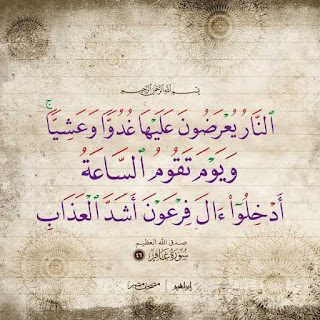 بسم الله الرحمن الرحيم
ٱلنَّارُ يُعْرَضُونَ عَلَيْهَا غُدُوًّا وَعَشِيًّا ۚ
وَيَوْمَ تَقُومُ ٱلسَّاعَةُ
أَدْخِلُوٓا۟ ءَالَ فِرْعَوْنَ أَشَدَّ ٱلْعَذَابِ
صدق الله العظيم
سُورَةُ غَافِرٍ ٤٦
إبراهيم